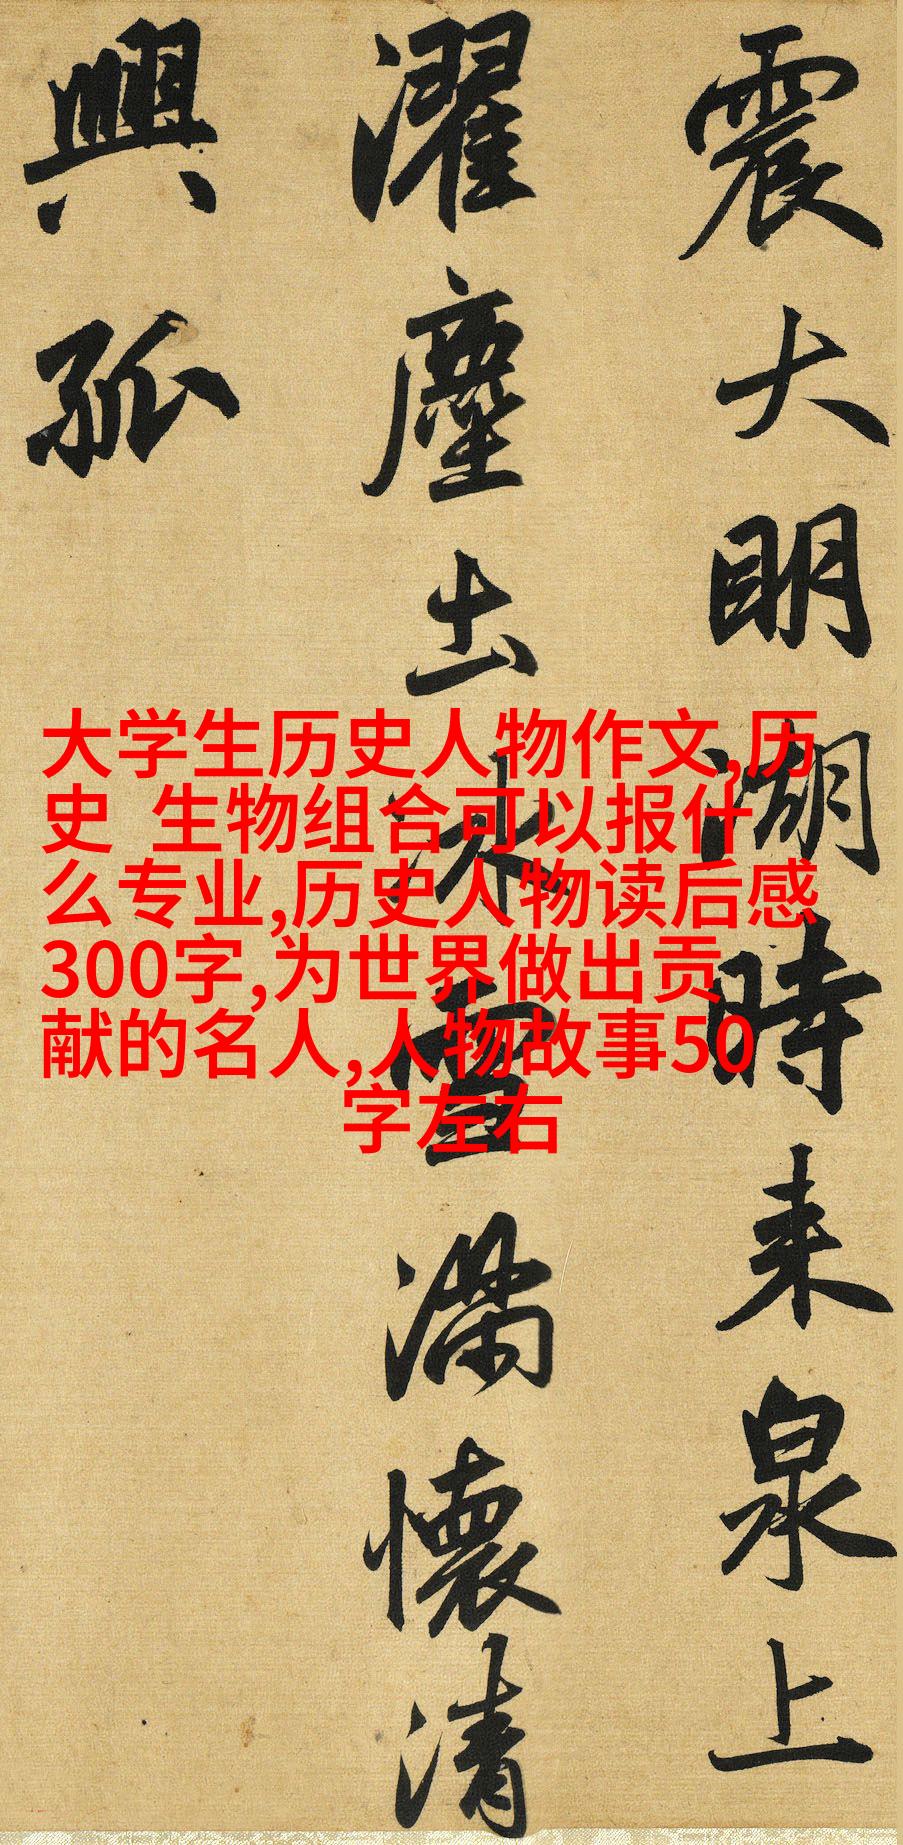 震大明湖時来泉上
濯塵出冰雪滿懷清
興孤
大学生历史人物作文,历
史 生物组合可以报什
么专业,历史人物读后感
300字,为世界做出贡
献的名人,人物故事50
字左右